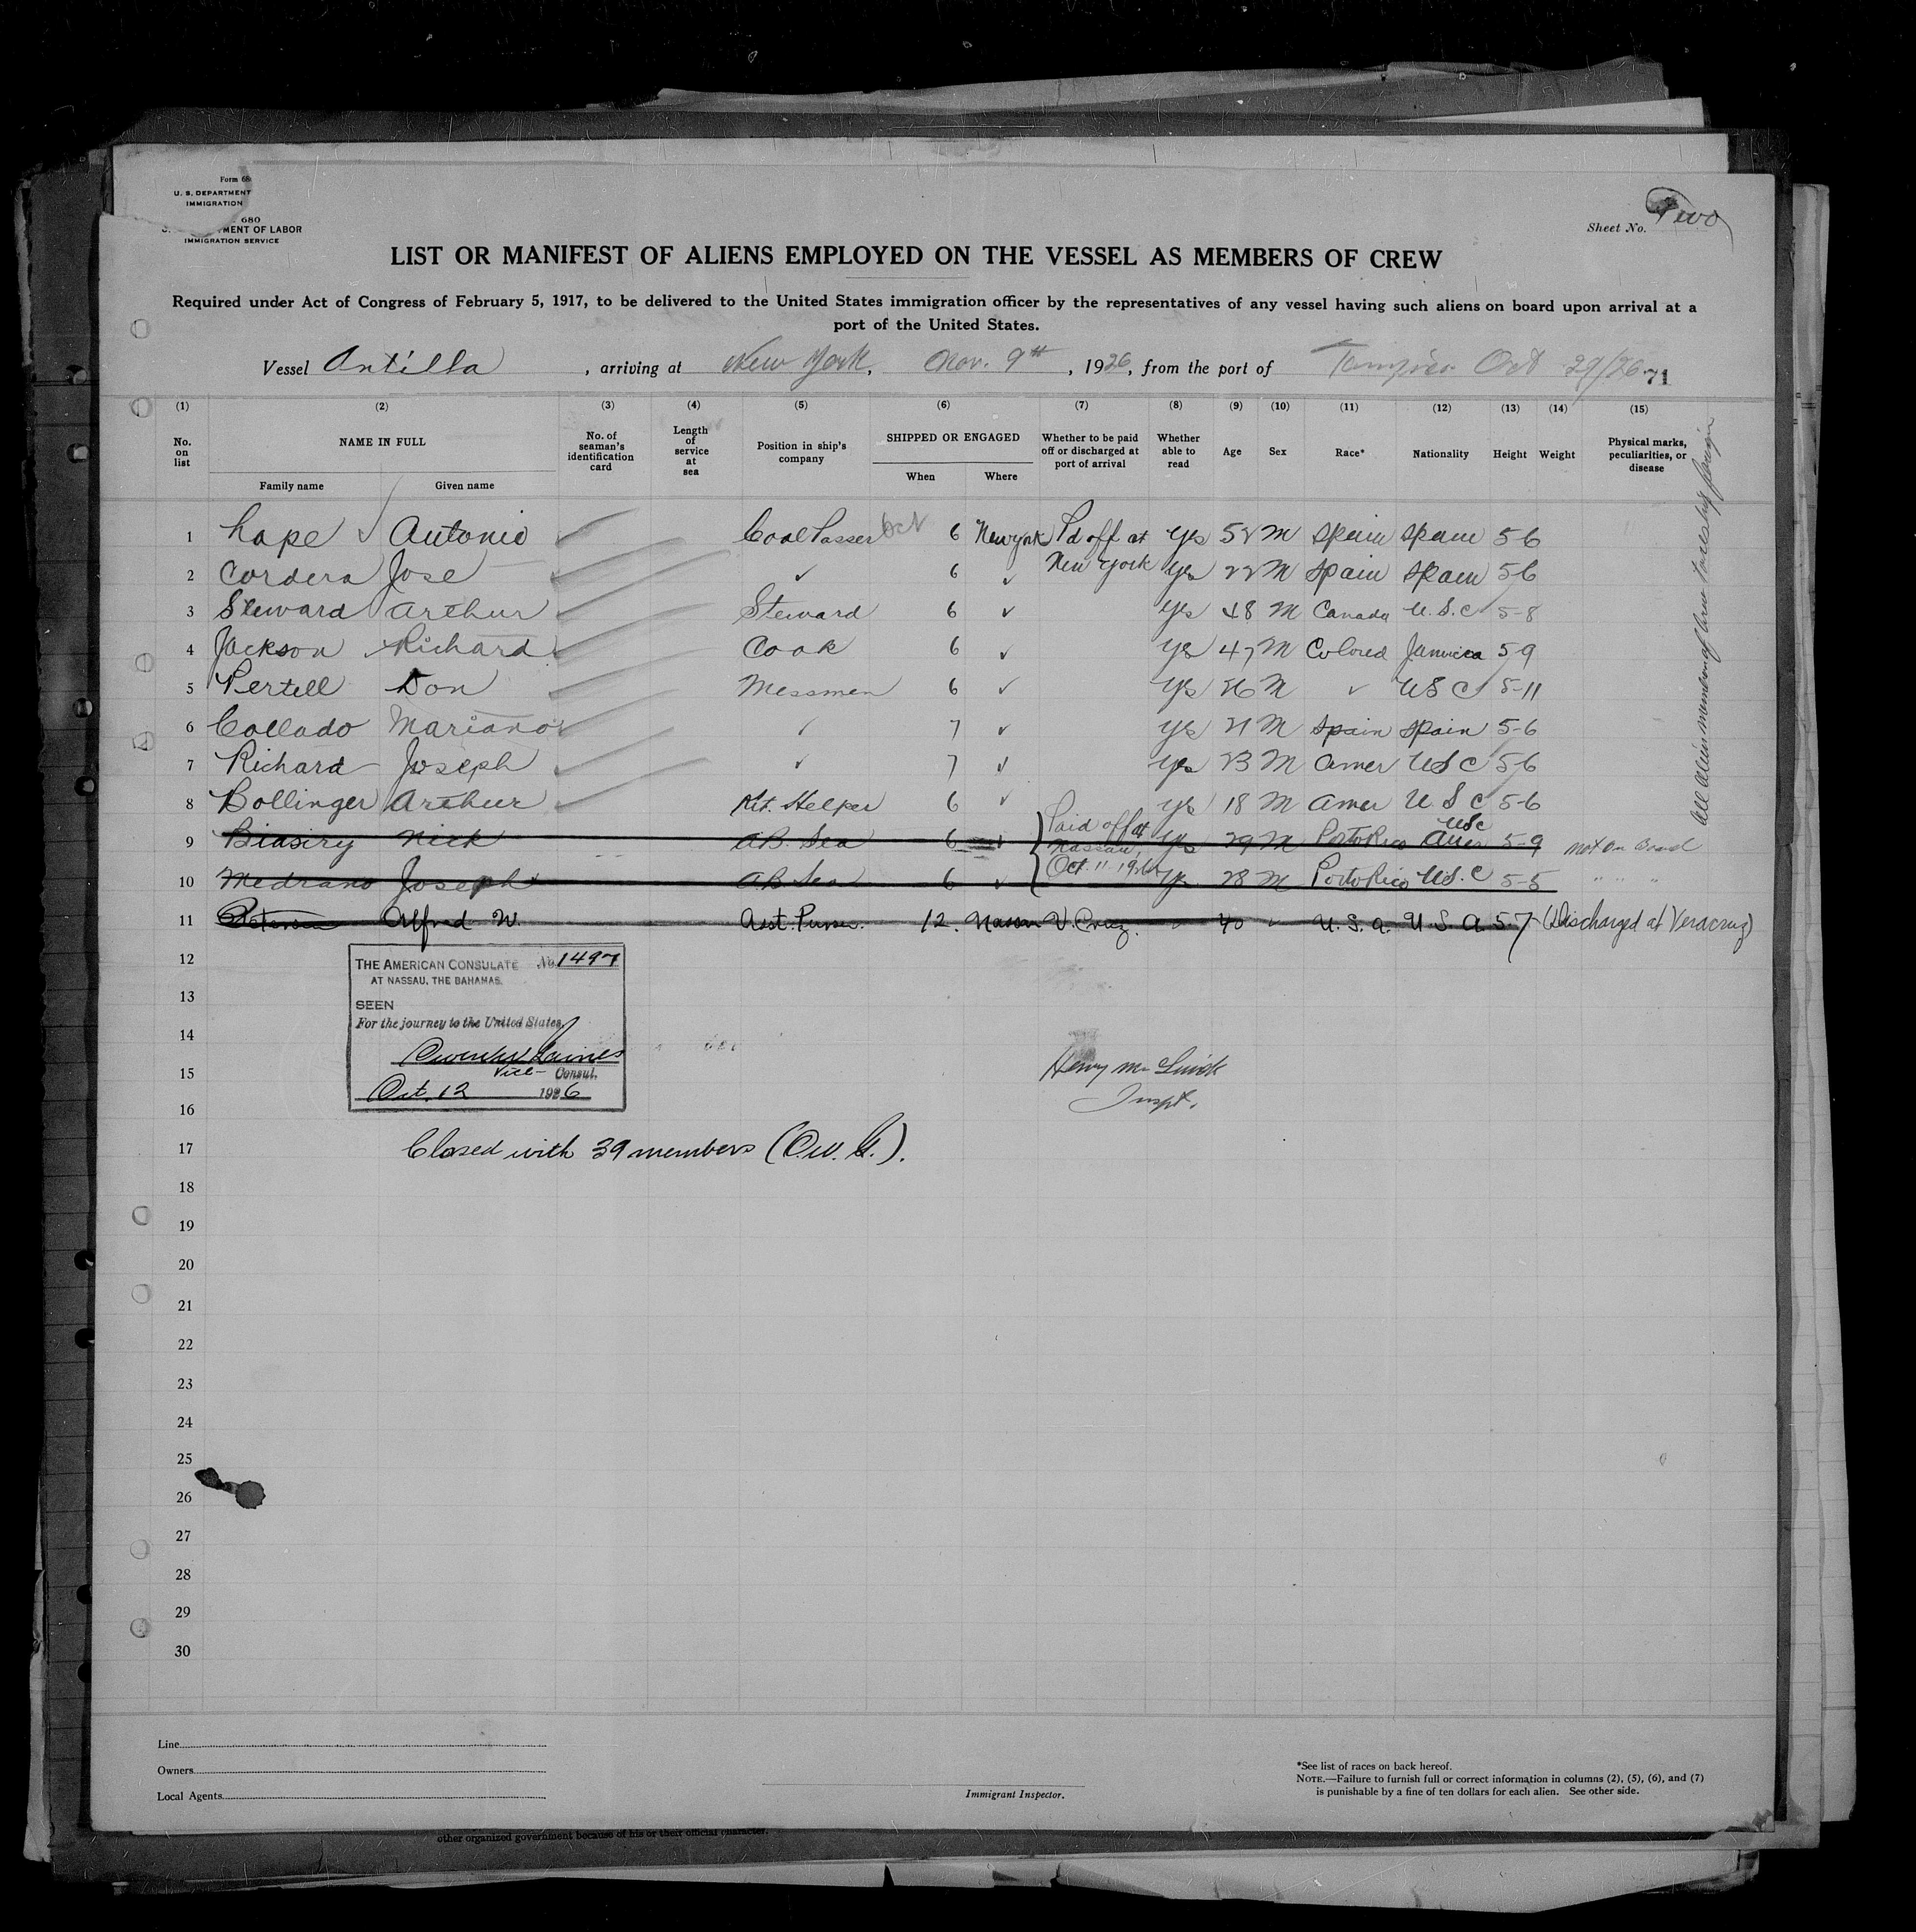 Form 68
U. S. DEPARTMENT
IMMIGRATION
680
MENT OF LABOR
IMMIGRATION SERVICE
Sheet No. Two
LIST OR MANIFEST OF ALIENS EMPLOYED ON THE VESSEL AS MEMBERS OF CREW
Required under Act of Congress of February 5, 1917, to be delivered to the United States immigration officer by the representatives of any vessel having such aliens on board upon arrival at a
port of the United States.
Vessel Antilla, arriving at New York, Nov. 9th, 1926, from the port of Oct 29/26 71
(1) (2) (3) (4) (5) (6) (7) (8) (9) (10) (11) (12) (13) (14) (15)
No. on list NAME IN FULL No. of seaman's identification card Length of service at sea Position in ship's company SHIPPED OR ENGAGED Whether to be paid off or discharged at port of arrival Whether able to read Age Sex Race* Nationality Height Weight Physical marks, peculiarities, or disease
Family name Given name When Where
1 Lape Antonio ✓ Coal Passer Oct 6 New york Pd off at yes 52 M Spain Spain 5-6
2 Cordera Jose ✓ ✓ 6 ✓ New York yes 22 M Spain Spain 5-6
3 Steward Arthur ✓ Steward 6 ✓ yes 48 M Canada U.S.C 5-8
4 Jackson Richard ✓ Cook 6 ✓ yes 47 M Colored Jamica 5-9
5 Pertell Don ✓ Messmen 6 ✓ yes 26 M ✓ USC 5-11
6 Collado Mariano ✓ ✓ 7 ✓ yes 21 M Spain Spain 5-6
7 Richard Joseph ✓ ✓ 7 ✓ yes 23 M Amer USC 5-6
8 Bollinger Arthur ✓ Kit. Helper 6 ✓ yes 18 M Amer U.S.C 5-6
9 Biasiry Nick A.B. Sea 6 ✓ Paid off at Nassau yes 29 M PortoRico USC Amer 5-9 not on Board
10 Medrano Joseph A.B. Sea 6 ✓ Oct. 11-1926 yes 28 M PortoRico U.S.C 5-5 " " "
11 Peterson Alfred W. Asst. Purser. 12. Nassau V. Cruz. 40 U.S.A. U.S.A. 5-7 (Discharged at Veracruz)
12
13
14
15
16
17
18
19
20
21
22
23
24
25
26
27
28
29
30
THE AMERICAN CONSULATE No. 1497
AT NASSAU, THE BAHAMAS.
SEEN
For the journey to the United States,
Vice- Consul.
Oct. 12 1926
Henry
Inspt.
Closed with 39 members (O.W.G.).
Line
Owners
Local Agents
Immigrant Inspector.
*See list of races on back hereof.
NOTE.—Failure to furnish full or correct information in columns (2), (5), (6), and (7)
is punishable by a fine of ten dollars for each alien. See other side.
other organized government because of his or their official character.